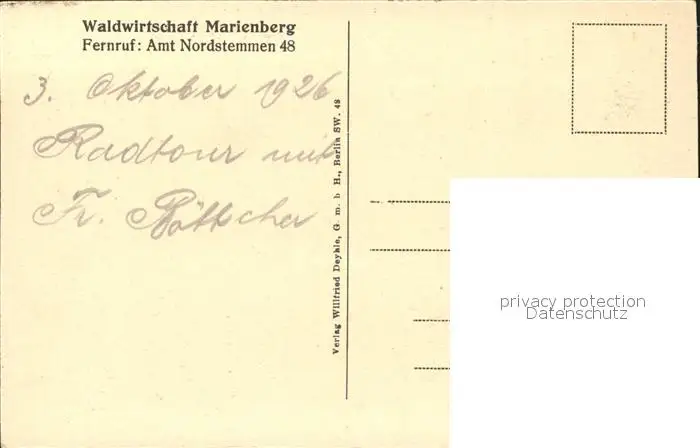 Waldwirtschaft Marienberg
Fernruf: Amt Nordstemmen 48
3. Oktober 1926
Radtour mit
Fr. Böttcher
Verlag Willfried Deyhle, G. m. b H., Berlin SW. 48
privacy protection
Datenschutz